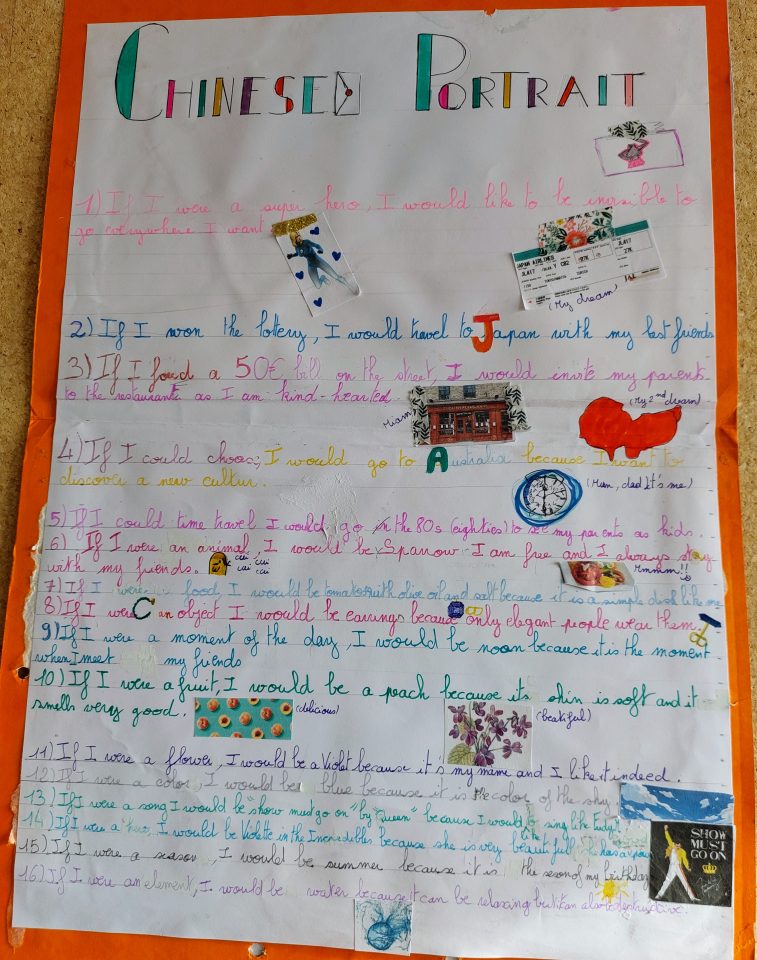 CHINESE PORTRAIT
1) If I were a super hero, I would like to be invisible to
go everywhere I want
JAPAN AIRLINES
JL417
(My dream)
2) If I won the lottery, I would travel to Japan with my best friends
3) If I found a 50€ bill on the street, I would invite my parents
to the restaurant as I am kind-hearted.
Miam
(My 2nd dream)
4) If I could choose, I would go to Australia because I want to
discover a new cultur.
(Mum, dad it's me)
5) If I could time travel I would go in the 80s (eighties) to see my parents as kids.
6) If I were an animal, I would be Sparrow I am free and I always stay
with my friends.
cui cui
cui cui
Mmmm!!
7) If I were food, I would be tomato with olive oil and salt because it is a simple dish like me
8) If I were an object I would be earrings because only elegant people wear them.
9) If I were a moment of the day, I would be noon because it is the moment
when I meet my friends
10) If I were a fruit, I would be a peach because its skin is soft and it
smells very good.
(delicious)
(beatiful)
11) If I were a flower, I would be a Violet because it's my name and I like it indeed.
12) If I were a color, I would be blue because it is the color of the sky.
13) If I were a song I would be "show must go on" by "Queen" because I would like to sing like
14) If I were a hero, I would be Violette in the Incredibles because she is very beautiful
SHOW MUST GO ON
15) If I were a season, I would be summer because it is the season of my birthday
16) If I were an element, I would be water because it can be relaxing but can also be destructive.